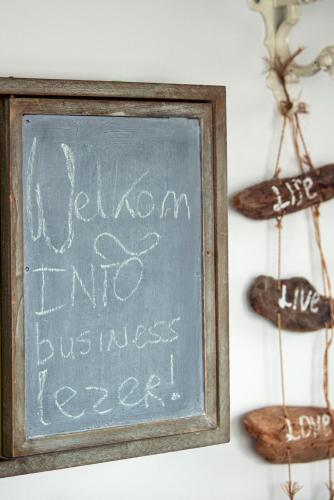 Welkom
INTO
business
lezer!
LIFE
LIVE
LOVE